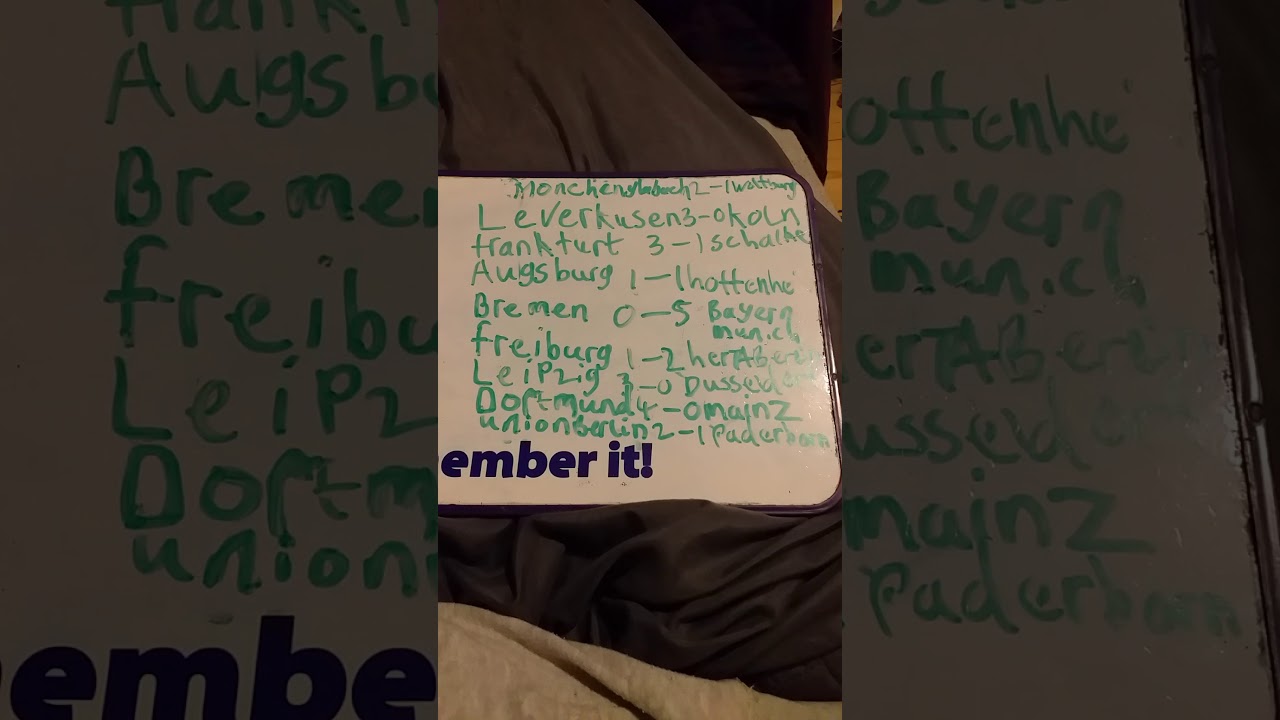 Monchenglabach 2-1 Wolfsburg
Leverkusen 3-0 Koln
frankfurt 3-1 schalke
Augsburg 1-1 hoffenhe
Bremen 0-5 Bayern
mun.ch
freiburg 1-2 hertABerlin
LeiPzig 3-0 Dusseldorf
Dortmund 4-0 mainz
unionBerlin 2-1 Paderborn
ember it!